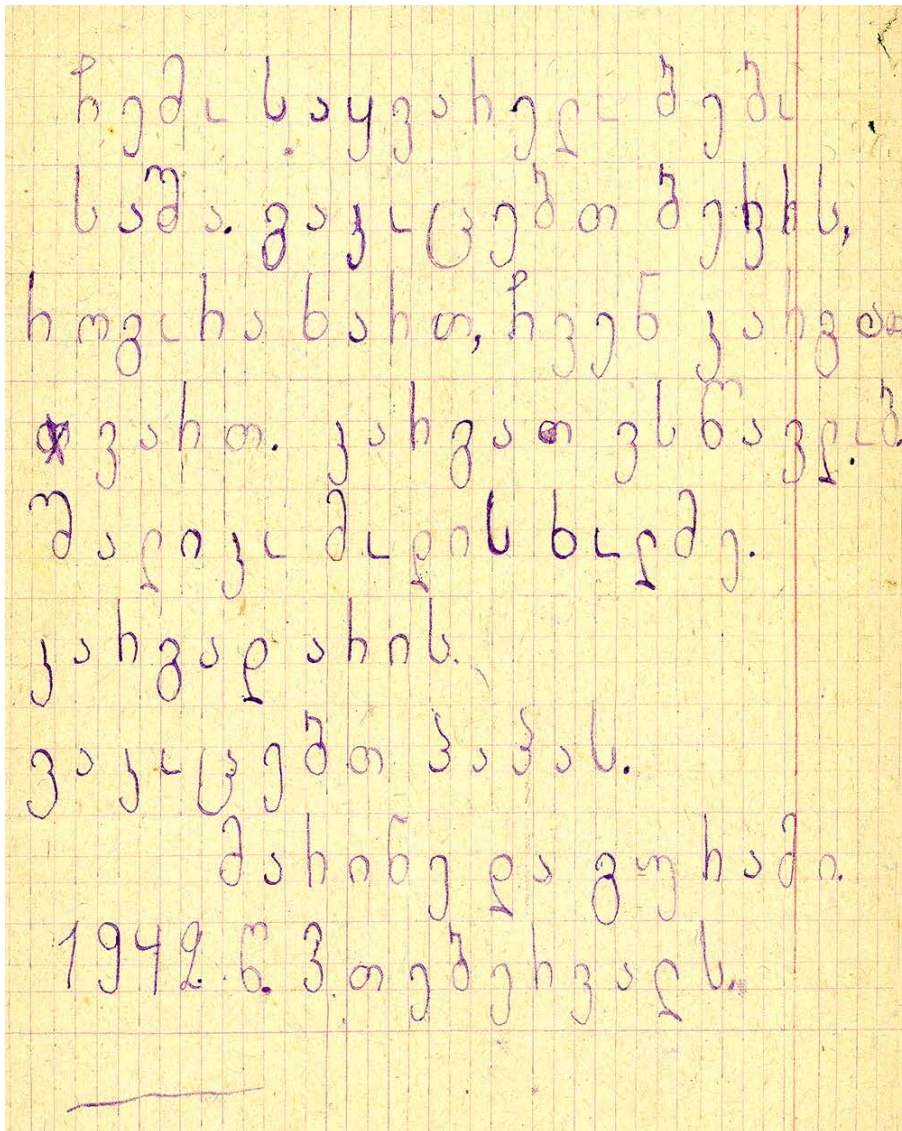 ჩემო საყვარელო ბებო
საშა. გაკოცებთ ბევრს,
როგორა ხართ, ჩვენ კარგათ
ვართ. კარგათ ვსწავლობ.
შალიკო მოდის ხოლმე.
კარგად არის.
ვაკოცებთ პაპას.
მარინე და გურამი.
1942. წ. 3 თებერვალს.